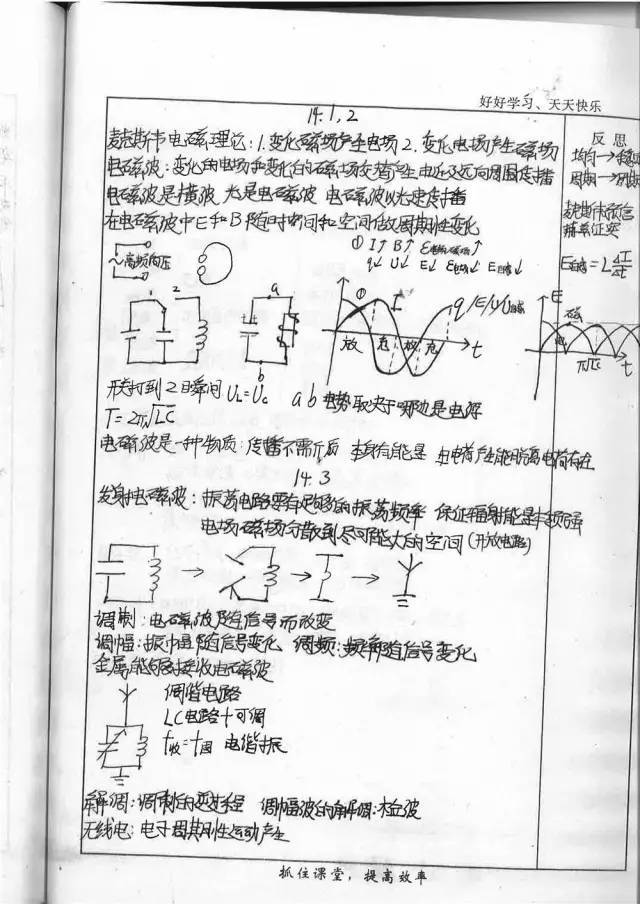 好好学习、天天快乐
14.1,2
反思
麦克斯韦电磁理论:1.变化磁场产生电场2.变化电场产生磁场
均匀→
电磁波:变化的电场和变化的磁场交替产生由近及远向周围传播
周期→
电磁波是横波 光是电磁波 电磁波以光速传播
麦克斯韦预言
在电磁波中E和B随时空间和空间做周期性变化
赫兹证实
① I↑ B↑
q↓ U↓ E↓
E自感=L ΔI/Δt
~高频高压
1 2
a
b
①
I
q
t
放 充 放 充
E
t
开关打到2瞬间 UL=UC a b 电势取决于哪边是电源
T=2π√LC
电磁波是一种物质:传播不需介质 本身有能量
14.3
发射电磁波:振荡电路要有足够高的振荡频率 保证辐射能量本领强
电场磁场分散到尽可能大的空间(开放电路)
调制:电磁波随信号而改变
调幅:振幅随信号变化 调频:频率随信号变化
金属能够接收电磁波
调谐电路
LC电路+可调
f收=f固 电谐振
解调:调制的逆过程 调幅波的解调:检波
无线电:电子周期性运动产生
抓住课堂,提高效率